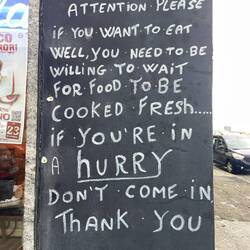 ATTENTION PLEASE
if YOU WANT TO EAT
WELL, YOU NEED TO BE
WILLING TO WAIT
FOR FOOD TO BE
COOKED FRESH.....
if YOU'RE iN
A hURRY
DON'T COME IN.
THANK YOU
23